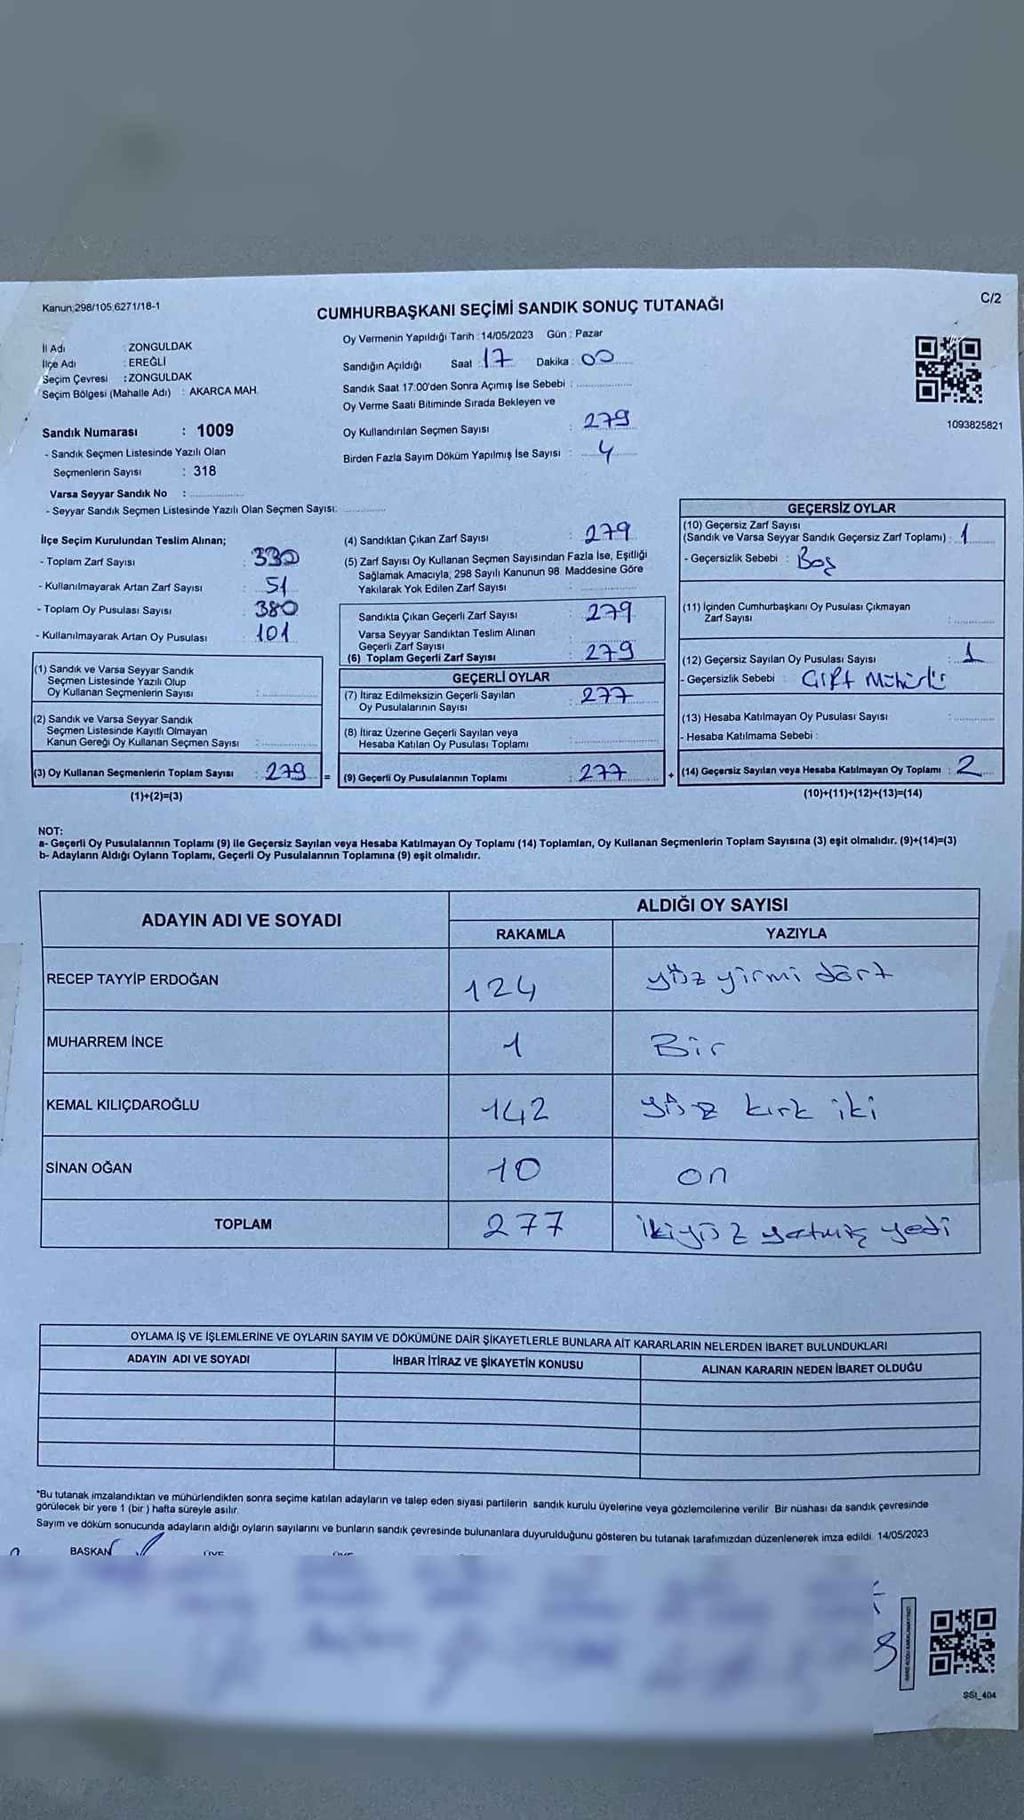 Kanun;298/105,6271/18-1
C/2
CUMHURBAŞKANI SEÇİMİ SANDIK SONUÇ TUTANAĞI
İl Adı : ZONGULDAK
İlçe Adı : EREĞLİ
Seçim Çevresi : ZONGULDAK
Seçim Bölgesi (Mahalle Adı) : AKARCA MAH.
Sandık Numarası : 1009
- Sandık Seçmen Listesinde Yazılı Olan
Seçmenlerin Sayısı : 318
Varsa Seyyar Sandık No :
- Seyyar Sandık Seçmen Listesinde Yazılı Olan Seçmen Sayısı:
Oy Vermenin Yapıldığı Tarih : 14/05/2023 Gün : Pazar
Sandığın Açıldığı Saat : 17 Dakika : 00
Sandık Saat 17:00'den Sonra Açımış İse Sebebi :
Oy Verme Saati Bitiminde Sırada Bekleyen ve
Oy Kullandırılan Seçmen Sayısı : 279
Birden Fazla Sayım Döküm Yapılmış İse Sayısı : 4
1093825821
İlçe Seçim Kurulundan Teslim Alınan;
- Toplam Zarf Sayısı : 330
- Kullanılmayarak Artan Zarf Sayısı : 51
- Toplam Oy Pusulası Sayısı : 380
- Kullanılmayarak Artan Oy Pusulası : 101
(1) Sandık ve Varsa Seyyar Sandık
Seçmen Listesinde Yazılı Olup
Oy Kullanan Seçmenlerin Sayısı :
(2) Sandık ve Varsa Seyyar Sandık
Seçmen Listesinde Kayıtlı Olmayan
Kanun Gereği Oy Kullanan Seçmen Sayısı :
(3) Oy Kullanan Seçmenlerin Toplam Sayısı : 279 =
(1)+(2)=(3)
(4) Sandıktan Çıkan Zarf Sayısı : 279
(5) Zarf Sayısı Oy Kullanan Seçmen Sayısından Fazla İse, Eşitliği
Sağlamak Amacıyla, 298 Sayılı Kanunun 98. Maddesine Göre
Yakılarak Yok Edilen Zarf Sayısı :
Sandıkta Çıkan Geçerli Zarf Sayısı : 279
Varsa Seyyar Sandıktan Teslim Alınan
Geçerli Zarf Sayısı
(6) Toplam Geçerli Zarf Sayısı : 279
GEÇERLİ OYLAR
(7) İtiraz Edilmeksizin Geçerli Sayılan
Oy Pusulalarının Sayısı : 277
(8) İtiraz Üzerine Geçerli Sayılan veya
Hesaba Katılan Oy Pusulası Toplamı :
(9) Geçerli Oy Pusulalarının Toplamı : 277 +
GEÇERSİZ OYLAR
(10) Geçersiz Zarf Sayısı
(Sandık ve Varsa Seyyar Sandık Geçersiz Zarf Toplamı) : 1
- Geçersizlik Sebebi : Boş
(11) İçinden Cumhurbaşkanı Oy Pusulası Çıkmayan
Zarf Sayısı :
(12) Geçersiz Sayılan Oy Pusulası Sayısı : 1
- Geçersizlik Sebebi : Çift Mühürlü
(13) Hesaba Katılmayan Oy Pusulası Sayısı :
- Hesaba Katılmama Sebebi :
(14) Geçersiz Sayılan veya Hesaba Katılmayan Oy Toplamı : 2
(10)+(11)+(12)+(13)=(14)
NOT:
a- Geçerli Oy Pusulalarının Toplamı (9) ile Geçersiz Sayılan veya Hesaba Katılmayan Oy Toplamı (14) Toplamları, Oy Kullanan Seçmenlerin Toplam Sayısına (3) eşit olmalıdır. (9)+(14)=(3)
b- Adayların Aldığı Oyların Toplamı, Geçerli Oy Pusulalarının Toplamına (9) eşit olmalıdır.
ADAYIN ADI VE SOYADI
ALDIĞI OY SAYISI
RAKAMLA YAZIYLA
RECEP TAYYİP ERDOĞAN 124 yüz yirmi dört
MUHARREM İNCE 1 Bir
KEMAL KILIÇDAROĞLU 142 yüz kırk iki
SİNAN OĞAN 10 on
TOPLAM 277 ikiyüz yetmiş yedi
OYLAMA İŞ VE İŞLEMLERİNE VE OYLARIN SAYIM VE DÖKÜMÜNE DAİR ŞİKAYETLERLE BUNLARA AİT KARARLARIN NELERDEN İBARET BULUNDUKLARI
ADAYIN ADI VE SOYADI İHBAR İTİRAZ VE ŞİKAYETİN KONUSU ALINAN KARARIN NEDEN İBARET OLDUĞU
*Bu tutanak imzalandıktan ve mühürlendikten sonra seçime katılan adayların ve talep eden siyasi partilerin sandık kurulu üyelerine veya gözlemcilerine verilir. Bir nüshası da sandık çevresinde
görülecek bir yere 1 (bir ) hafta süreyle asılır.
Sayım ve döküm sonucunda adayların aldığı oyların sayılarını ve bunların sandık çevresinde bulunanlara duyurulduğunu gösteren bu tutanak tarafımızdan düzenlenerek imza edildi. 14/05/2023
BAŞKAN ÜYE ÜYE
SSI_404